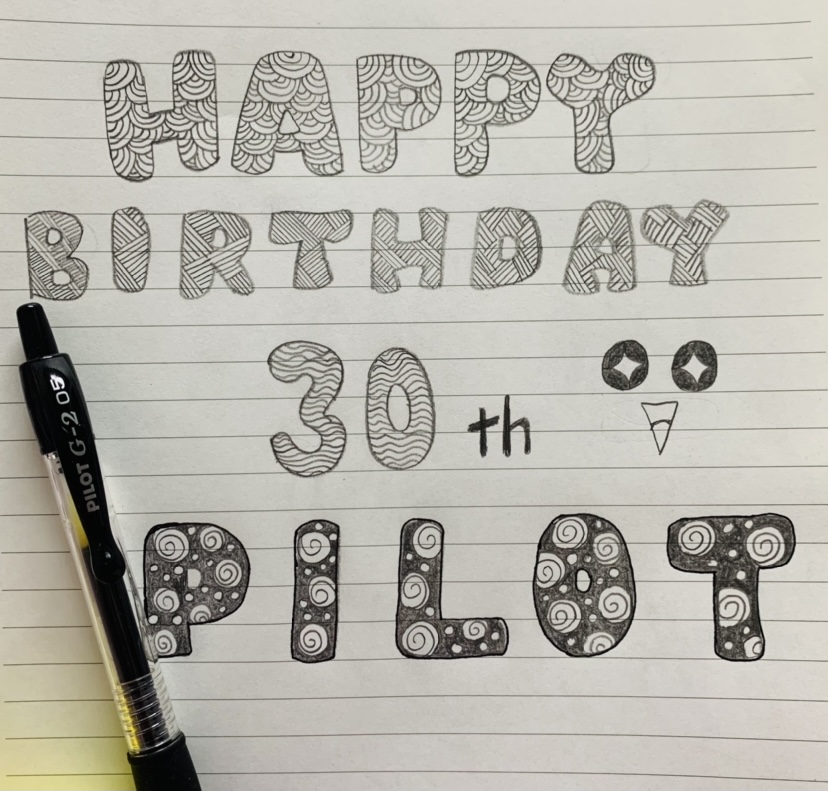 HAPPY
BIRTHDAY
30 th
PILOT
PILOT G-2 05